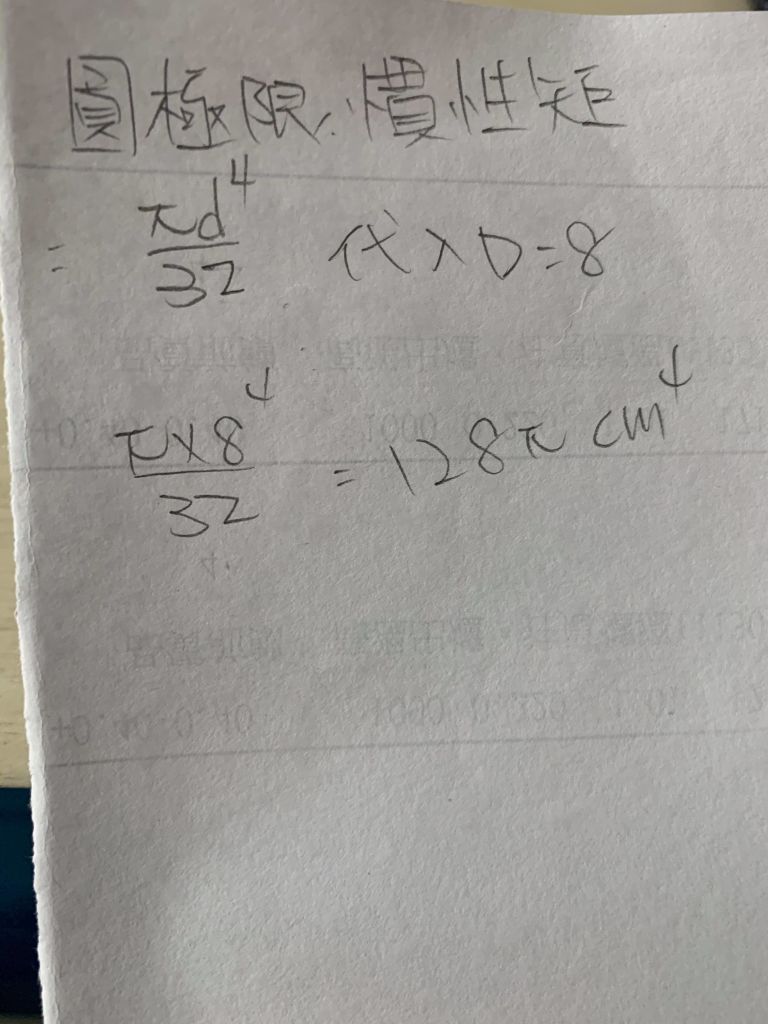 圓極限.慣性矩
= πd⁴/32 代入D=8
π×8⁴/32 = 128π cm⁴